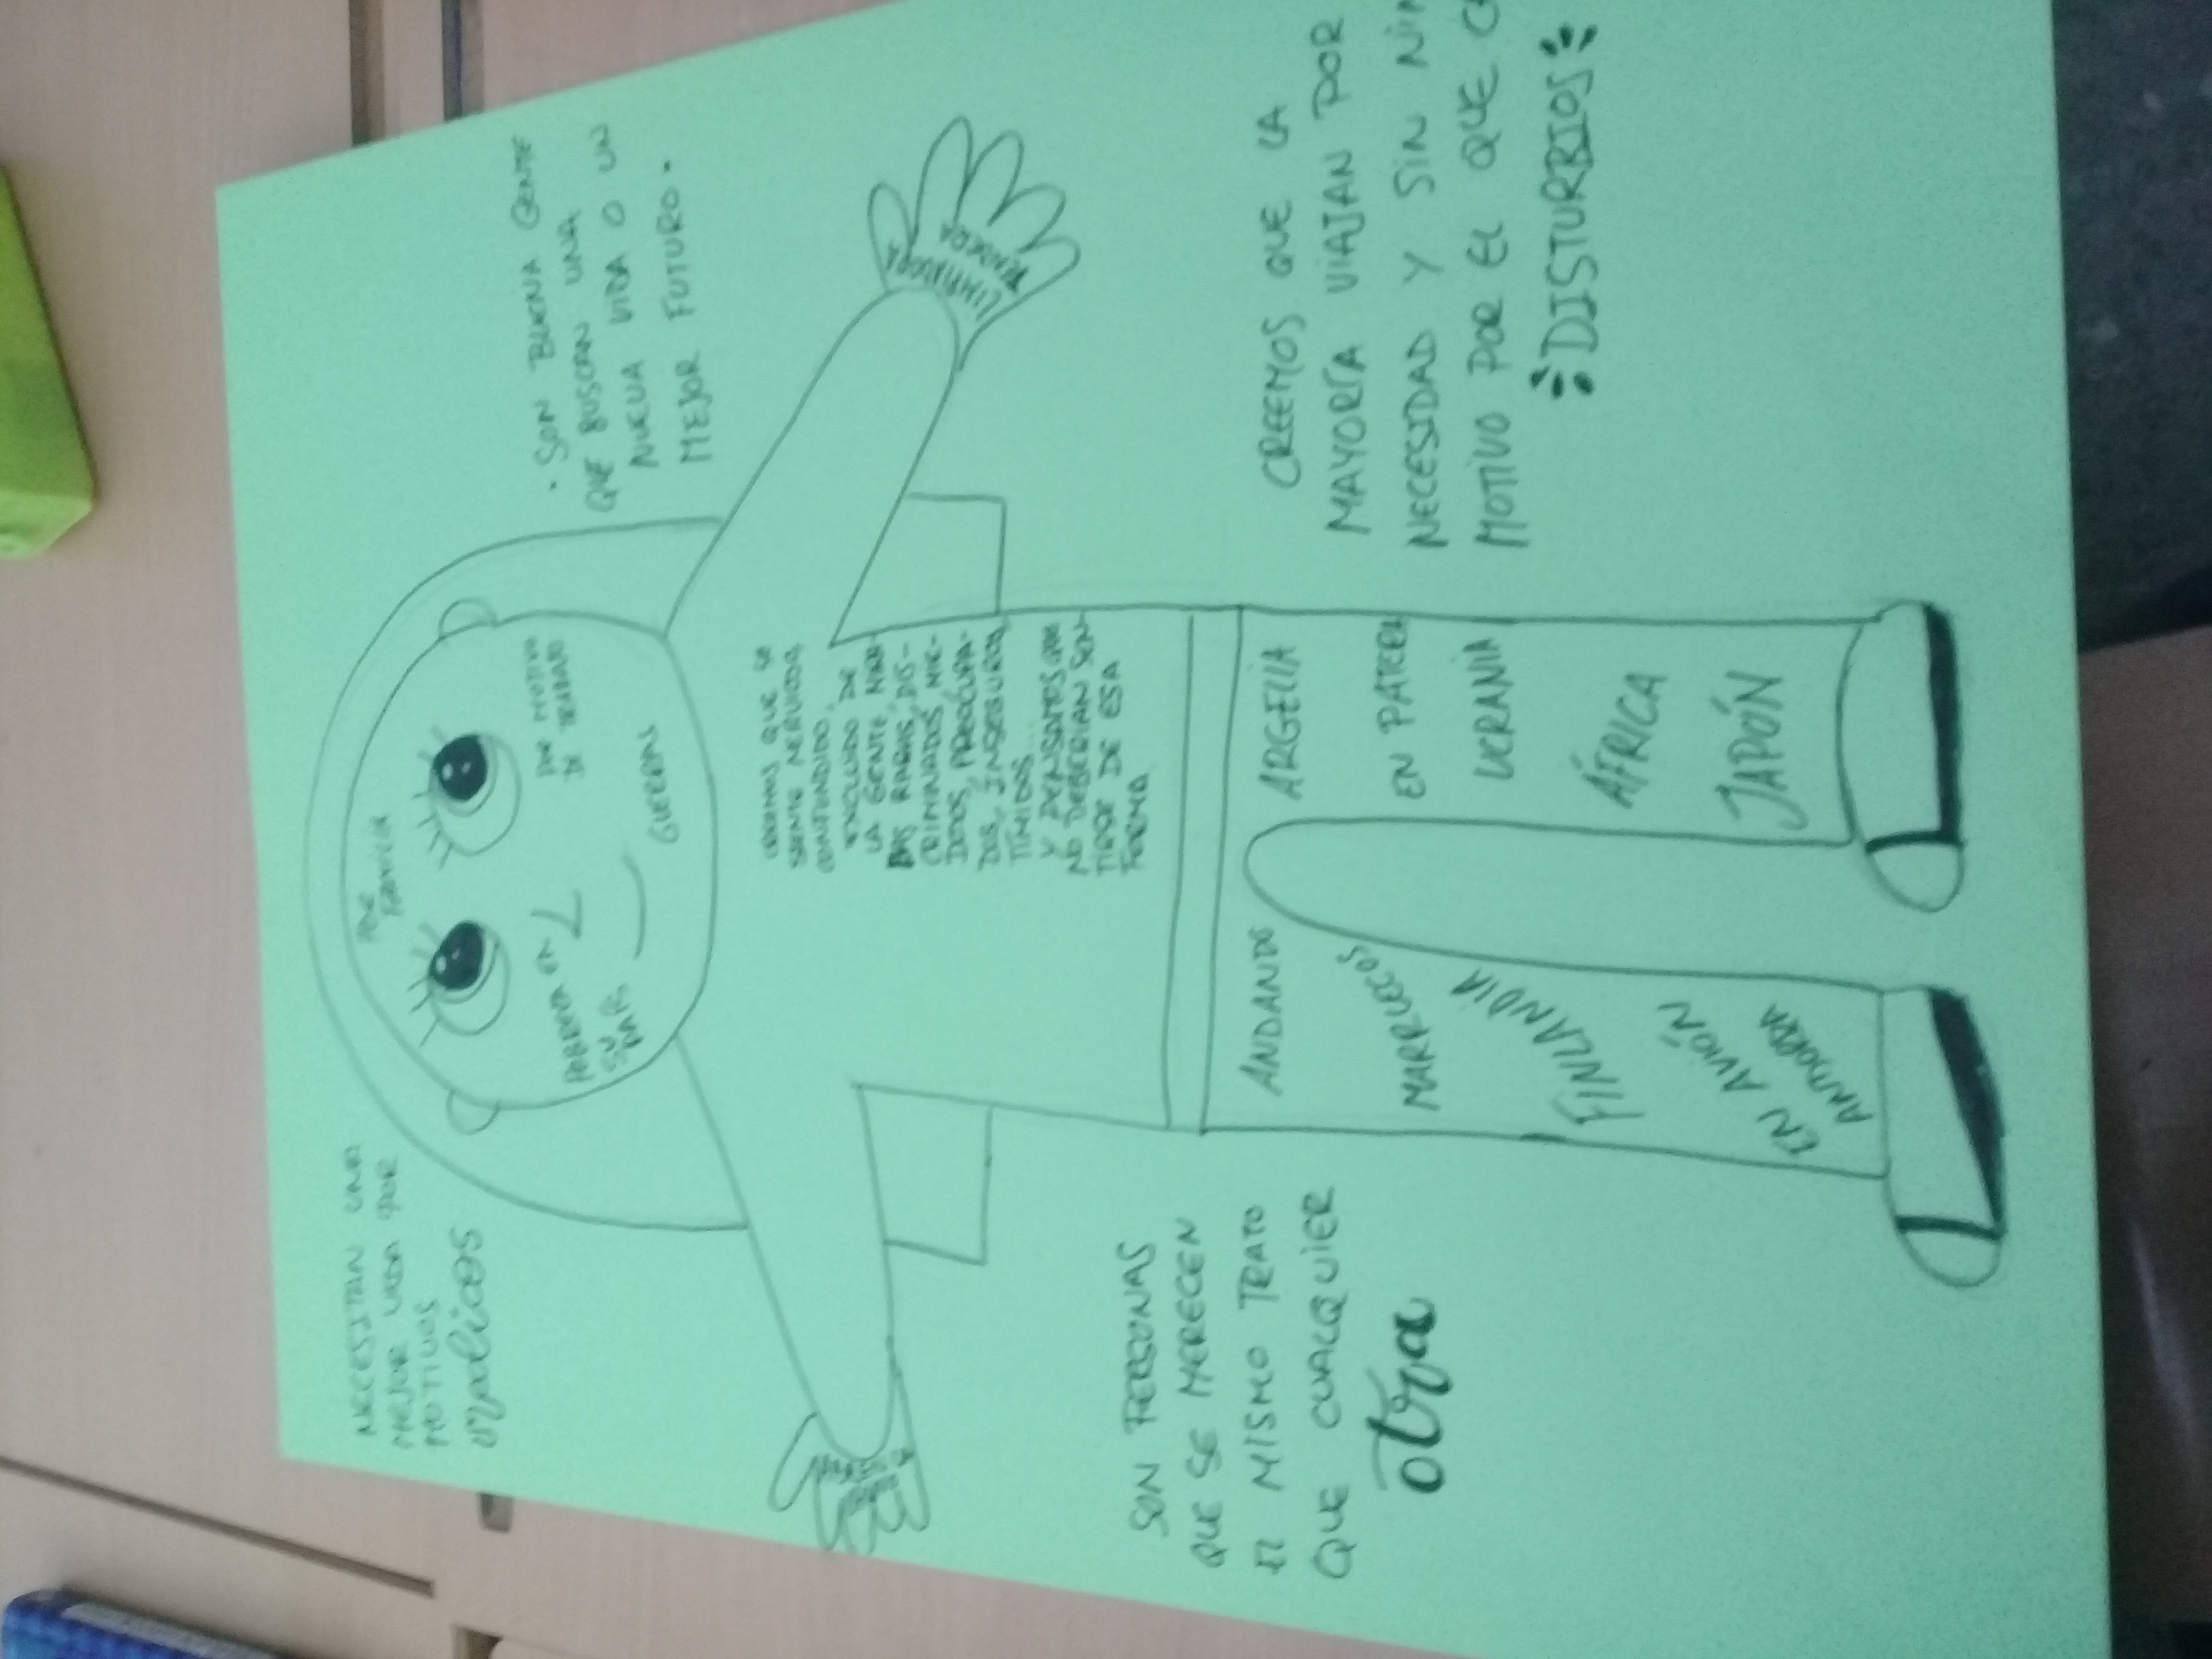 NECESITAN UNA
MEJOR VIDA POR
MOTIVOS
medicos
· SON BUENA GENTE
QUE BUSCAN UNA
NUEVA VIDA O UN
MEJOR FUTURO.
POR
FAMILIA
POBREZA EN
SU
PAÍS
POR MOTIVO
DE TRABAJO
GUERRA
LIMPIADORA
QUE SE
SIENTE NERVIOSA
CONFUNDIDO,
EXCLUIDO DE
LA GENTE,
RARAS, DIS-
CRIMINADOS, MIE-
DOSOS, PREOCUPA-
DOS, INSEGUROS,
TIMIDOS...
Y PENSAMOS QUE
NO DEBERIAN SEN-
TIRSE DE ESA
FORMA
SON PERSONAS
QUE SE MERECEN
EL MISMO TRATO
QUE CUALQUIER
otra
ANDANDO
MARRUECOS
FINLANDIA
EN AVIÓN
ANDORRA
ARGELIA
EN PATERA
UCRANIA
ÁFRICA
JAPÓN
CREEMOS QUE LA
MAYORÍA VIAJAN POR
NECESIDAD Y SIN NIN
MOTIVO POR EL QUE
DISTURBIOS